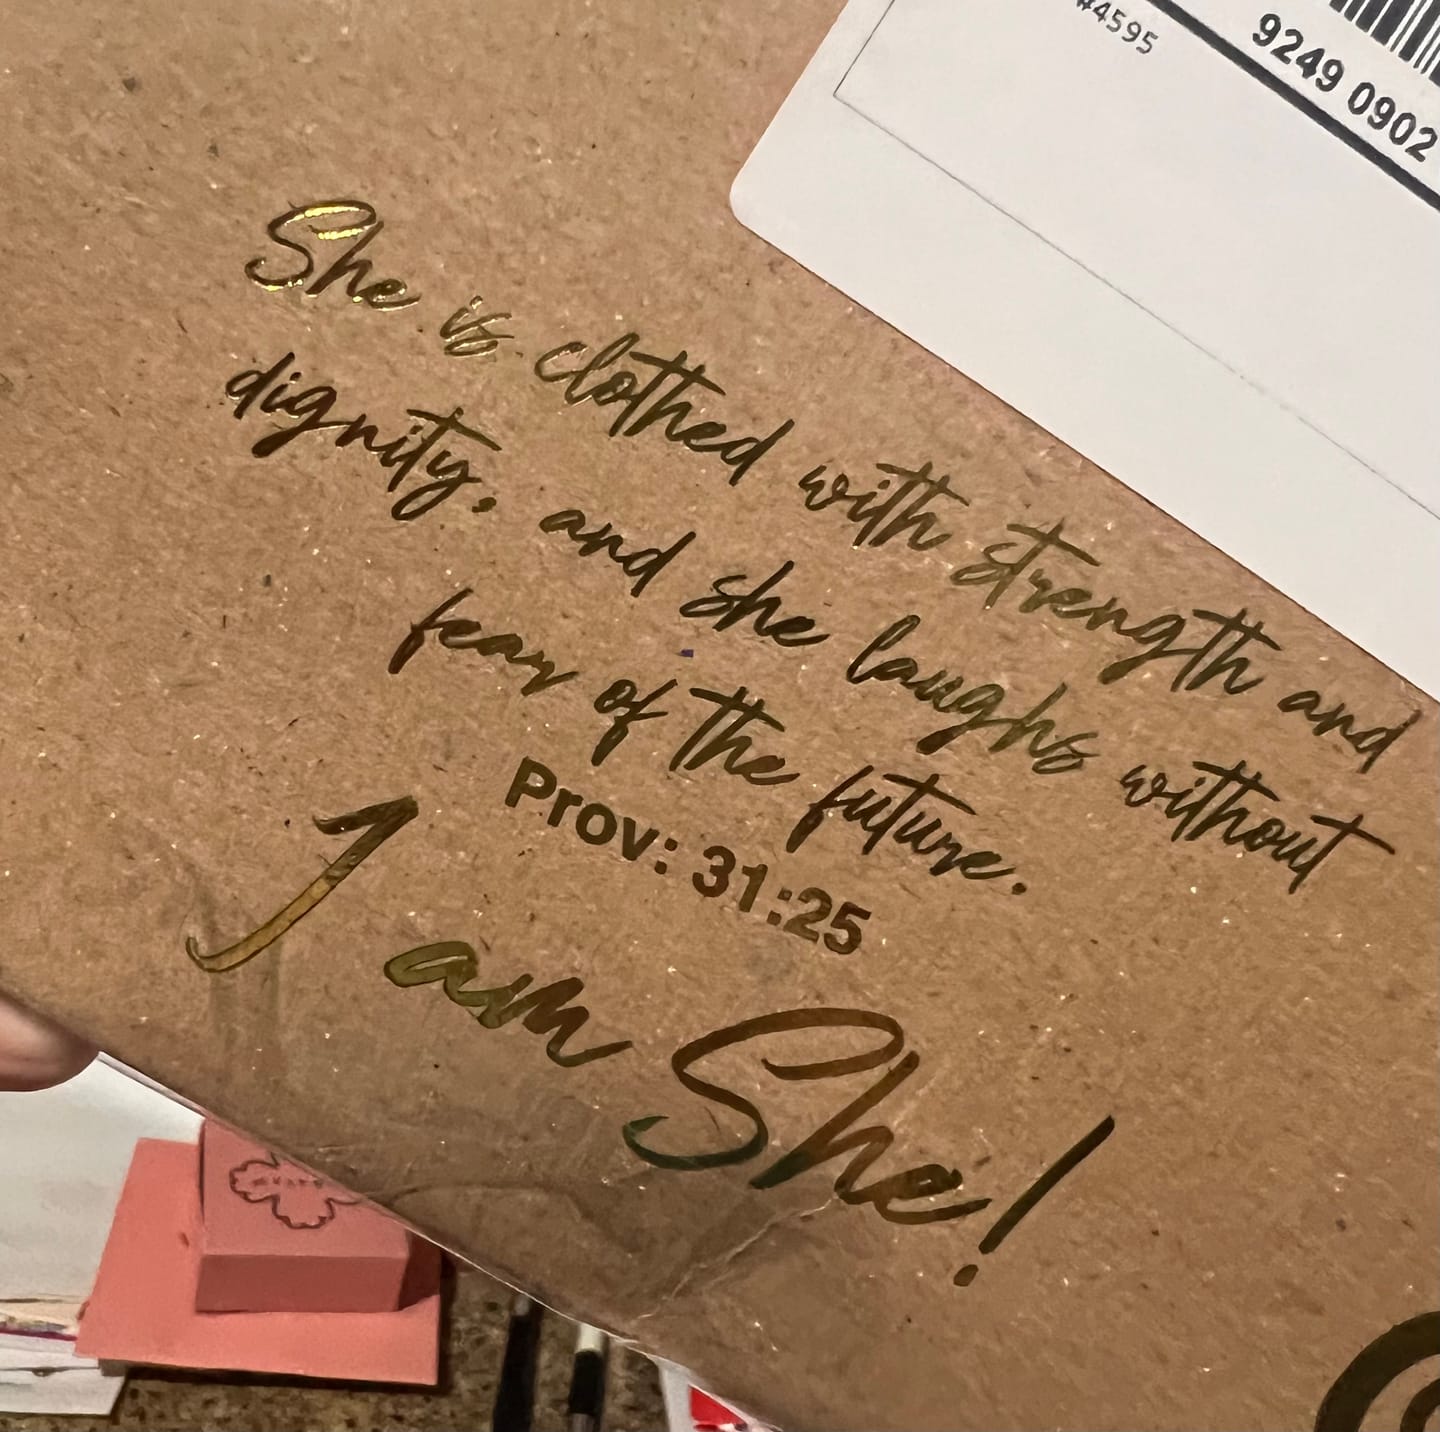 #4595
9249 0902
She is clothed with strength and
dignity, and she laughs without
fear of the future.
Prov: 31:25
I am She!